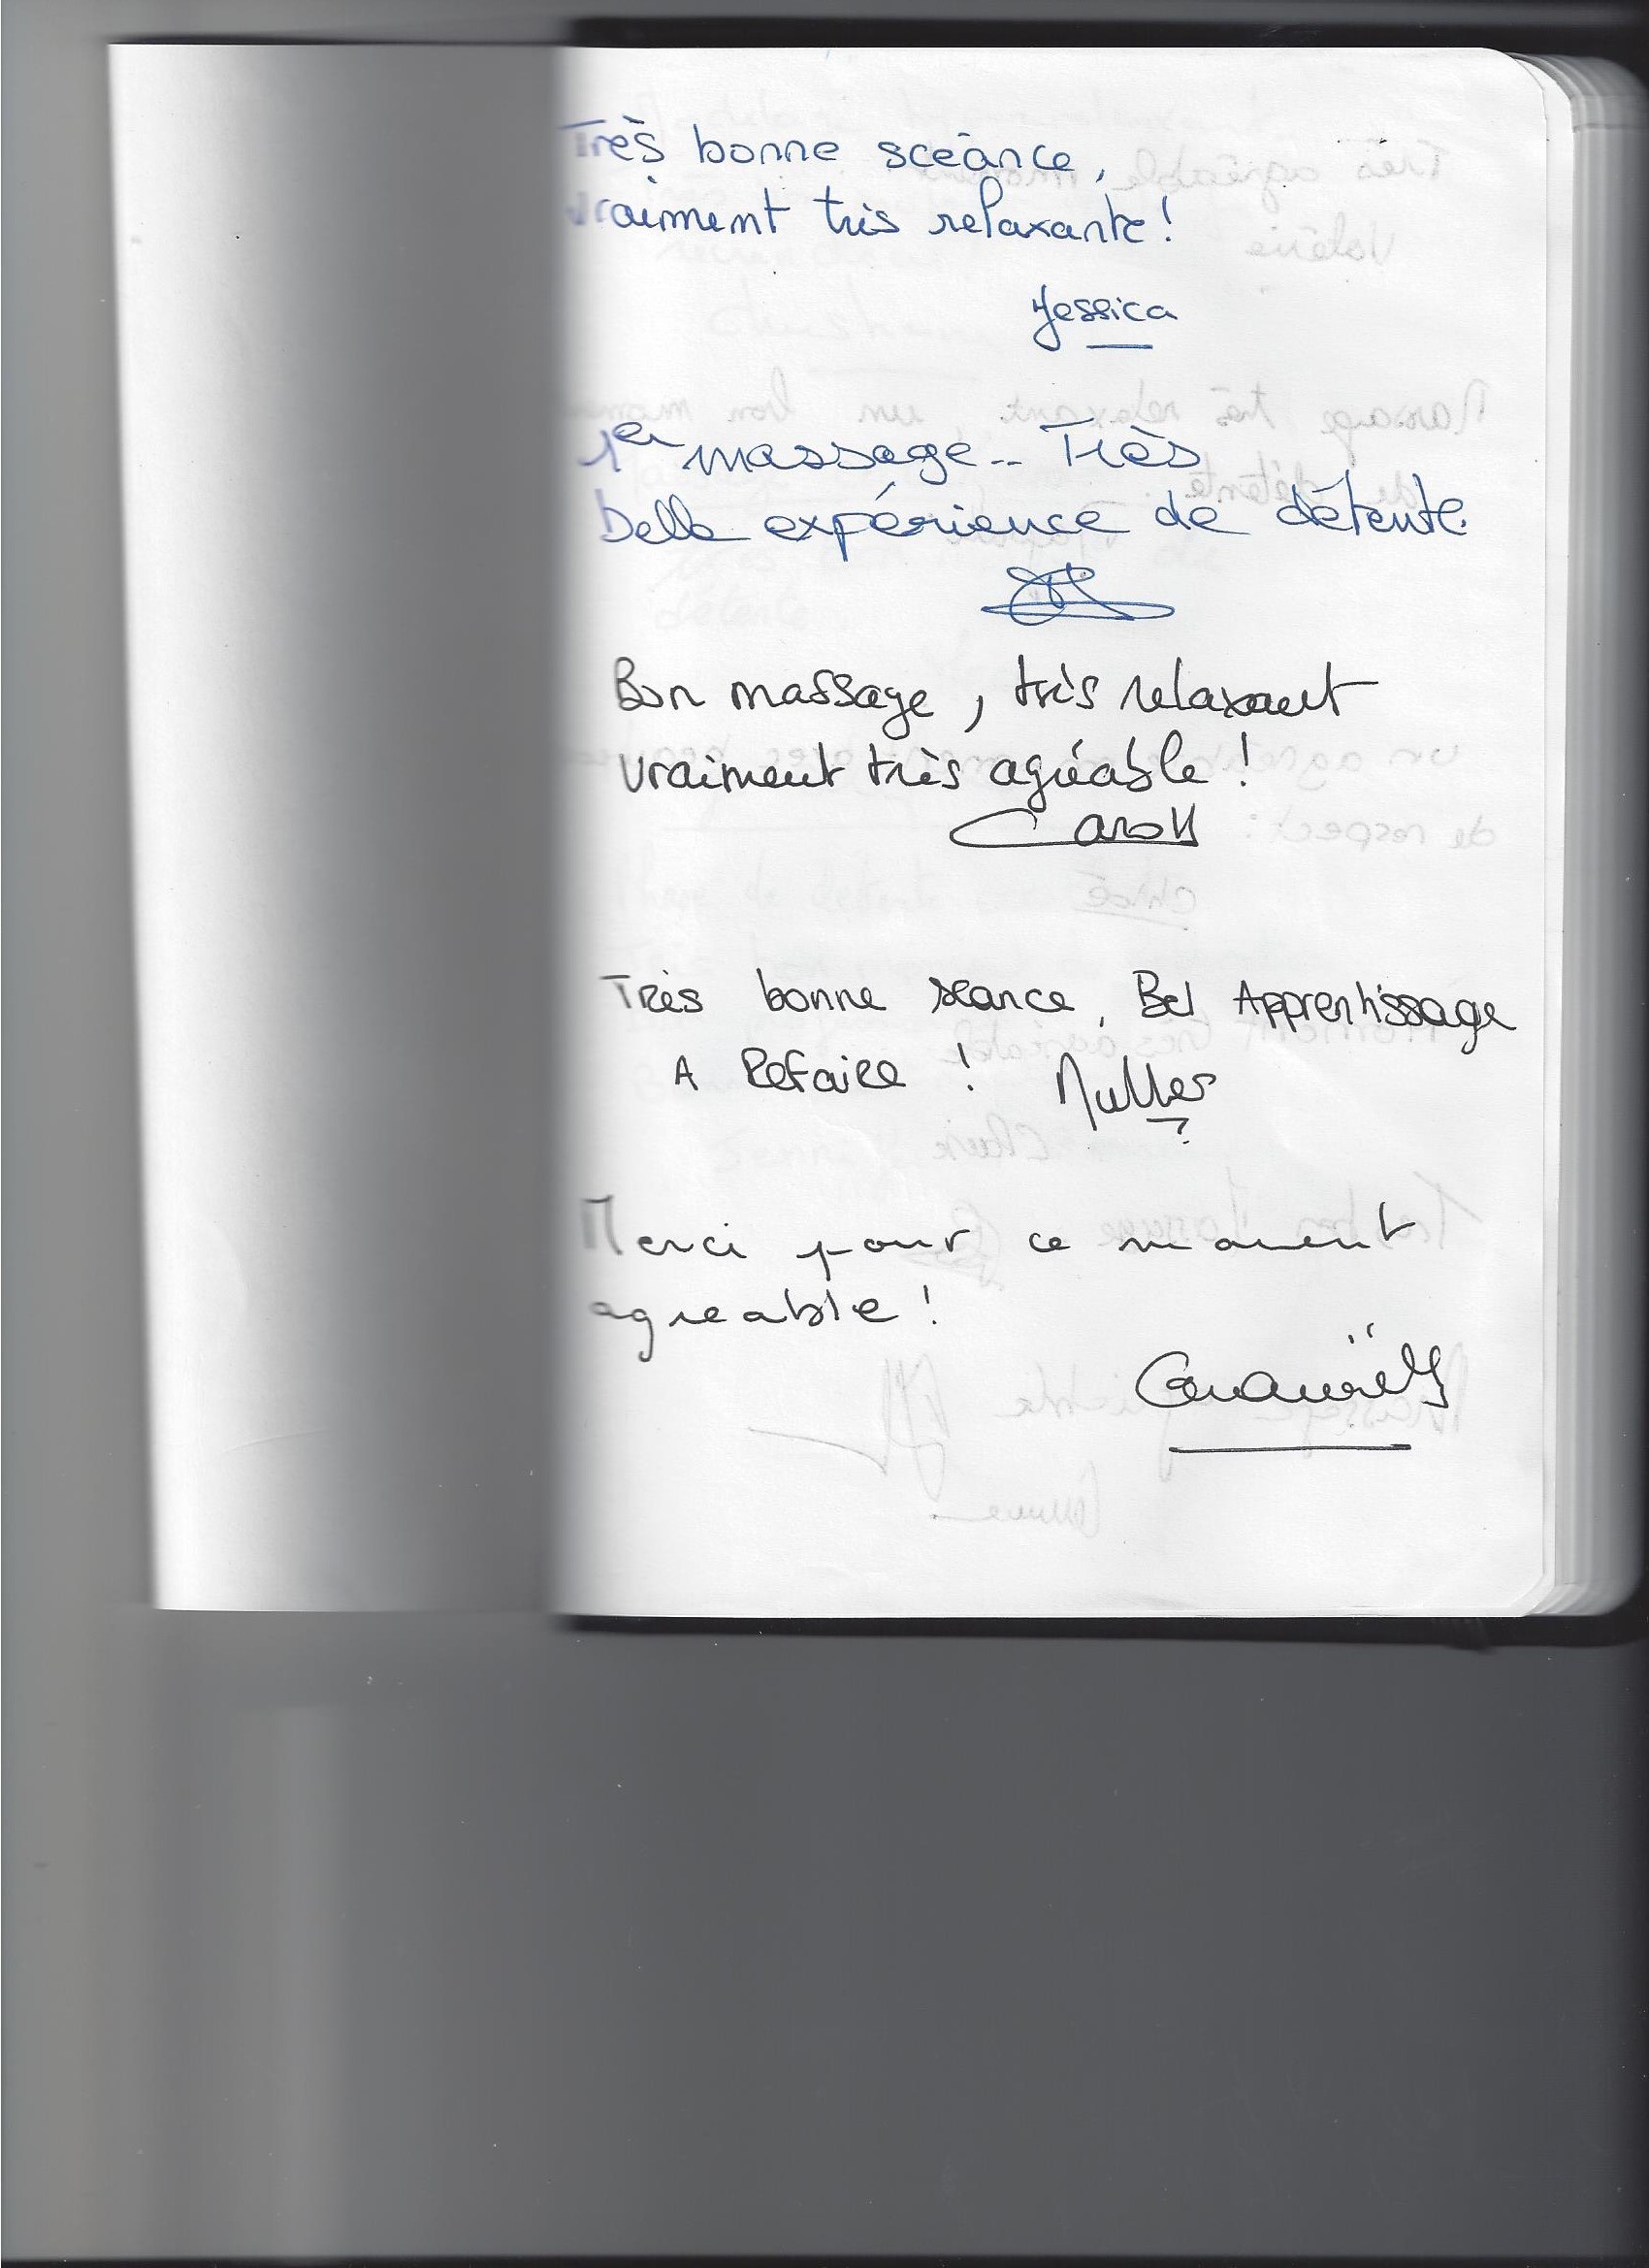 Très bonne scéance,
vraiment très relaxante !
Jessica
1er massage.. Très
belle expérience de détente.
Bon massage, très relaxant
vraiment très agréable !
Très bonne séance, Bel Apprentissage
A Refaire ! Muller
Merci pour ce moment
agreable !